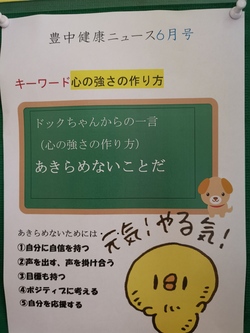 豊中健康ニュース6月号
キーワード心の強さの作り方
ドックちゃんからの一言
（心の強さの作り方）
あきらめないことだ
元気！やる気！
あきらめないためには・
①自分に自信を持つ
②声を出す、声を掛け合う
③目標も持つ
④ポジティブに考える
⑤自分を応援する